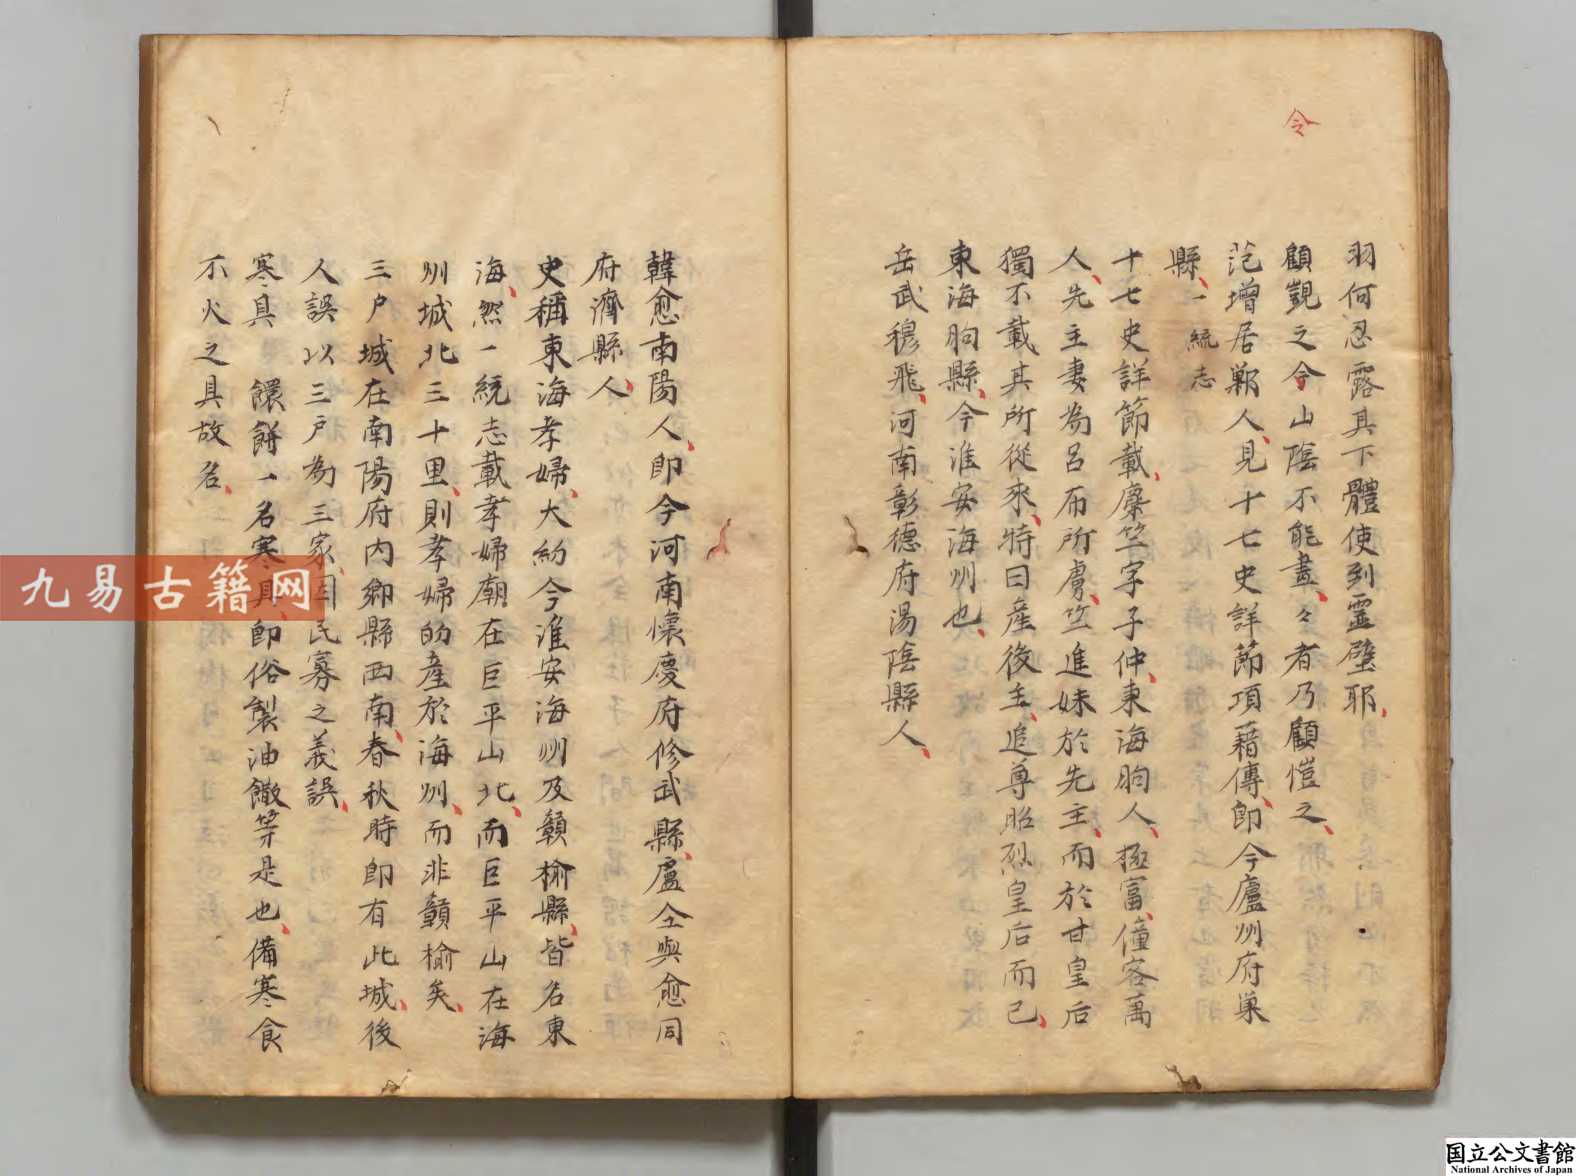 令
羽何忍露其下體使到靈壁耶
顧覬之今山陰不能畫々者乃顧愷之
范增居鄛人見十七史詳節項藉傳即今廬州府巢
縣一統志
十七史詳節載麋竺字子仲東海朐人極富僮客萬
人先主妻為呂布所虜竺進妹於先主而於甘皇后
獨不載其所從來特曰產後主追尊昭烈皇后而已
東海朐縣今淮安海州也
岳武穆飛河南彰德府湯陰縣人
韓愈南陽人即今河南懷慶府修武縣盧仝與愈同
府濟縣人
史稱東海孝婦大約今淮安海州及贛榆縣皆名東
海然一統志載孝婦廟在巨平山北而巨平山在海
州城北三十里則孝婦的產於海州而非贛榆矣
三戶城在南陽府內鄉縣西南春秋時即有此城後
人誤以三戶為三家因民寡之義誤
寒具 饊餅一名寒具即俗製油饊等是也備寒食
不火之具故名
九易古籍网
国立公文書館
National Archives of Japan